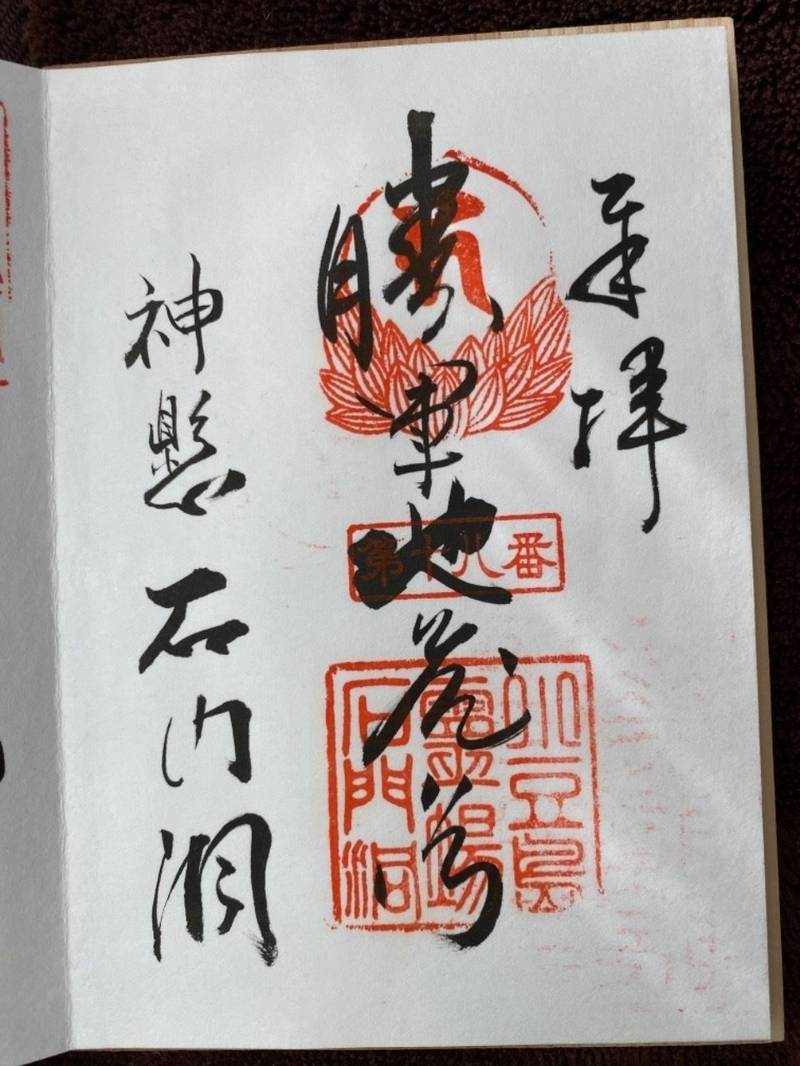 奉拝
勝軍地蔵尊
第十八番
小豆島
靈場
石門洞
神懸 石門洞